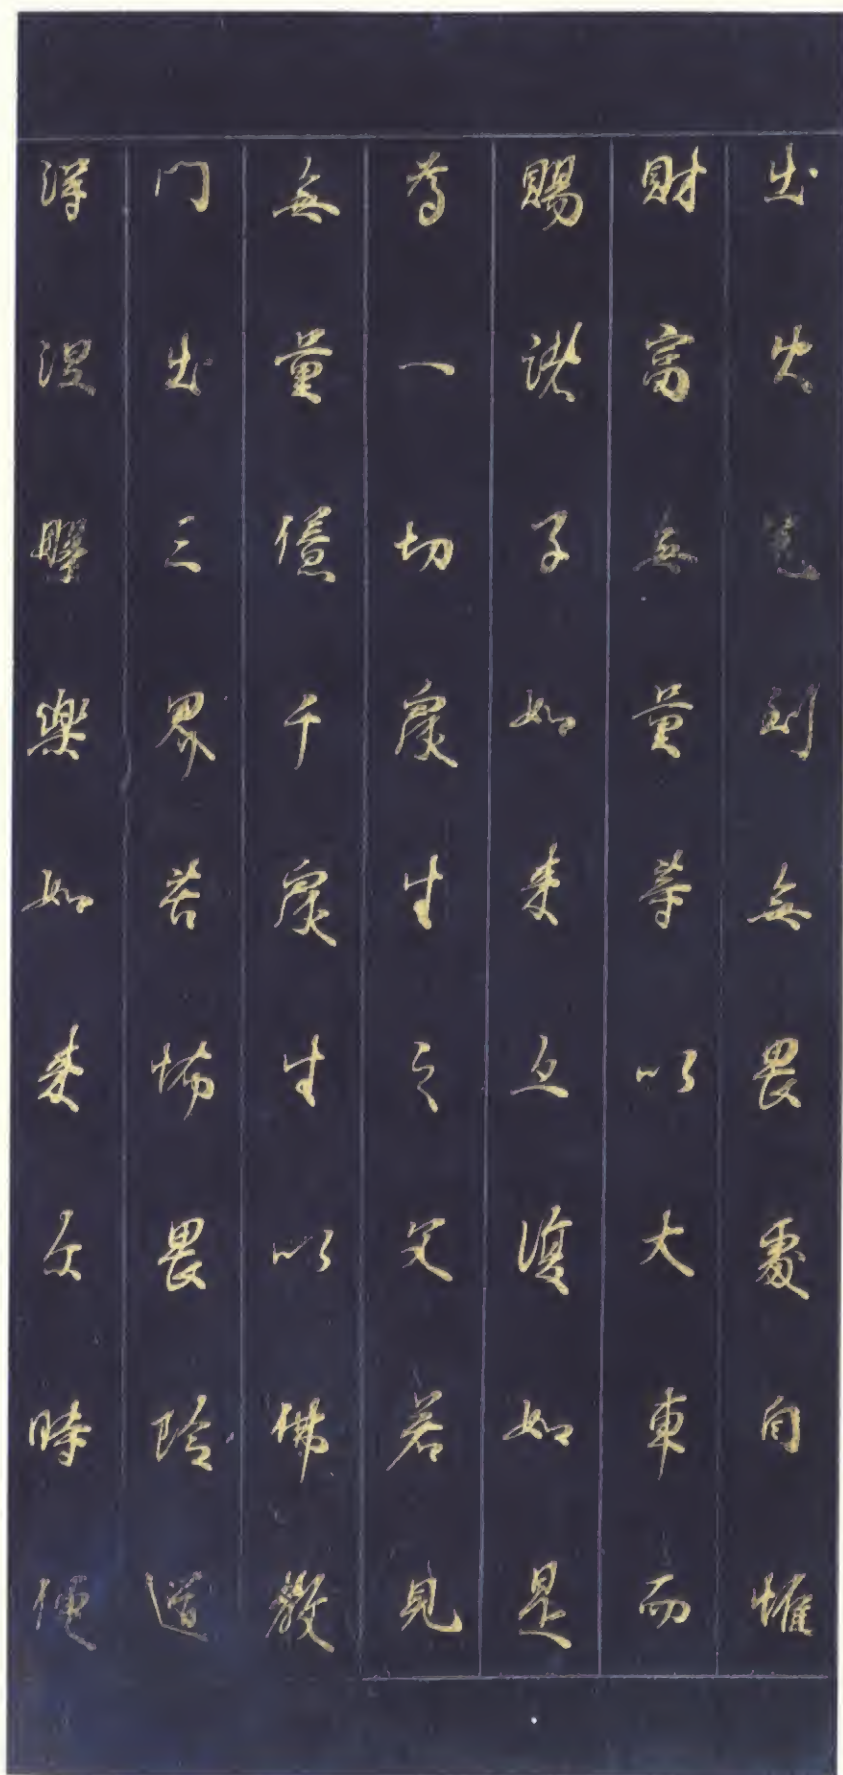 出火宅到無畏處自惟
財富無量等以大車而
賜諸子如來亦復如是
為一切眾生之父若見
無量億千眾生以佛教
門出三界苦怖畏險道
得涅槃樂如來尒時便